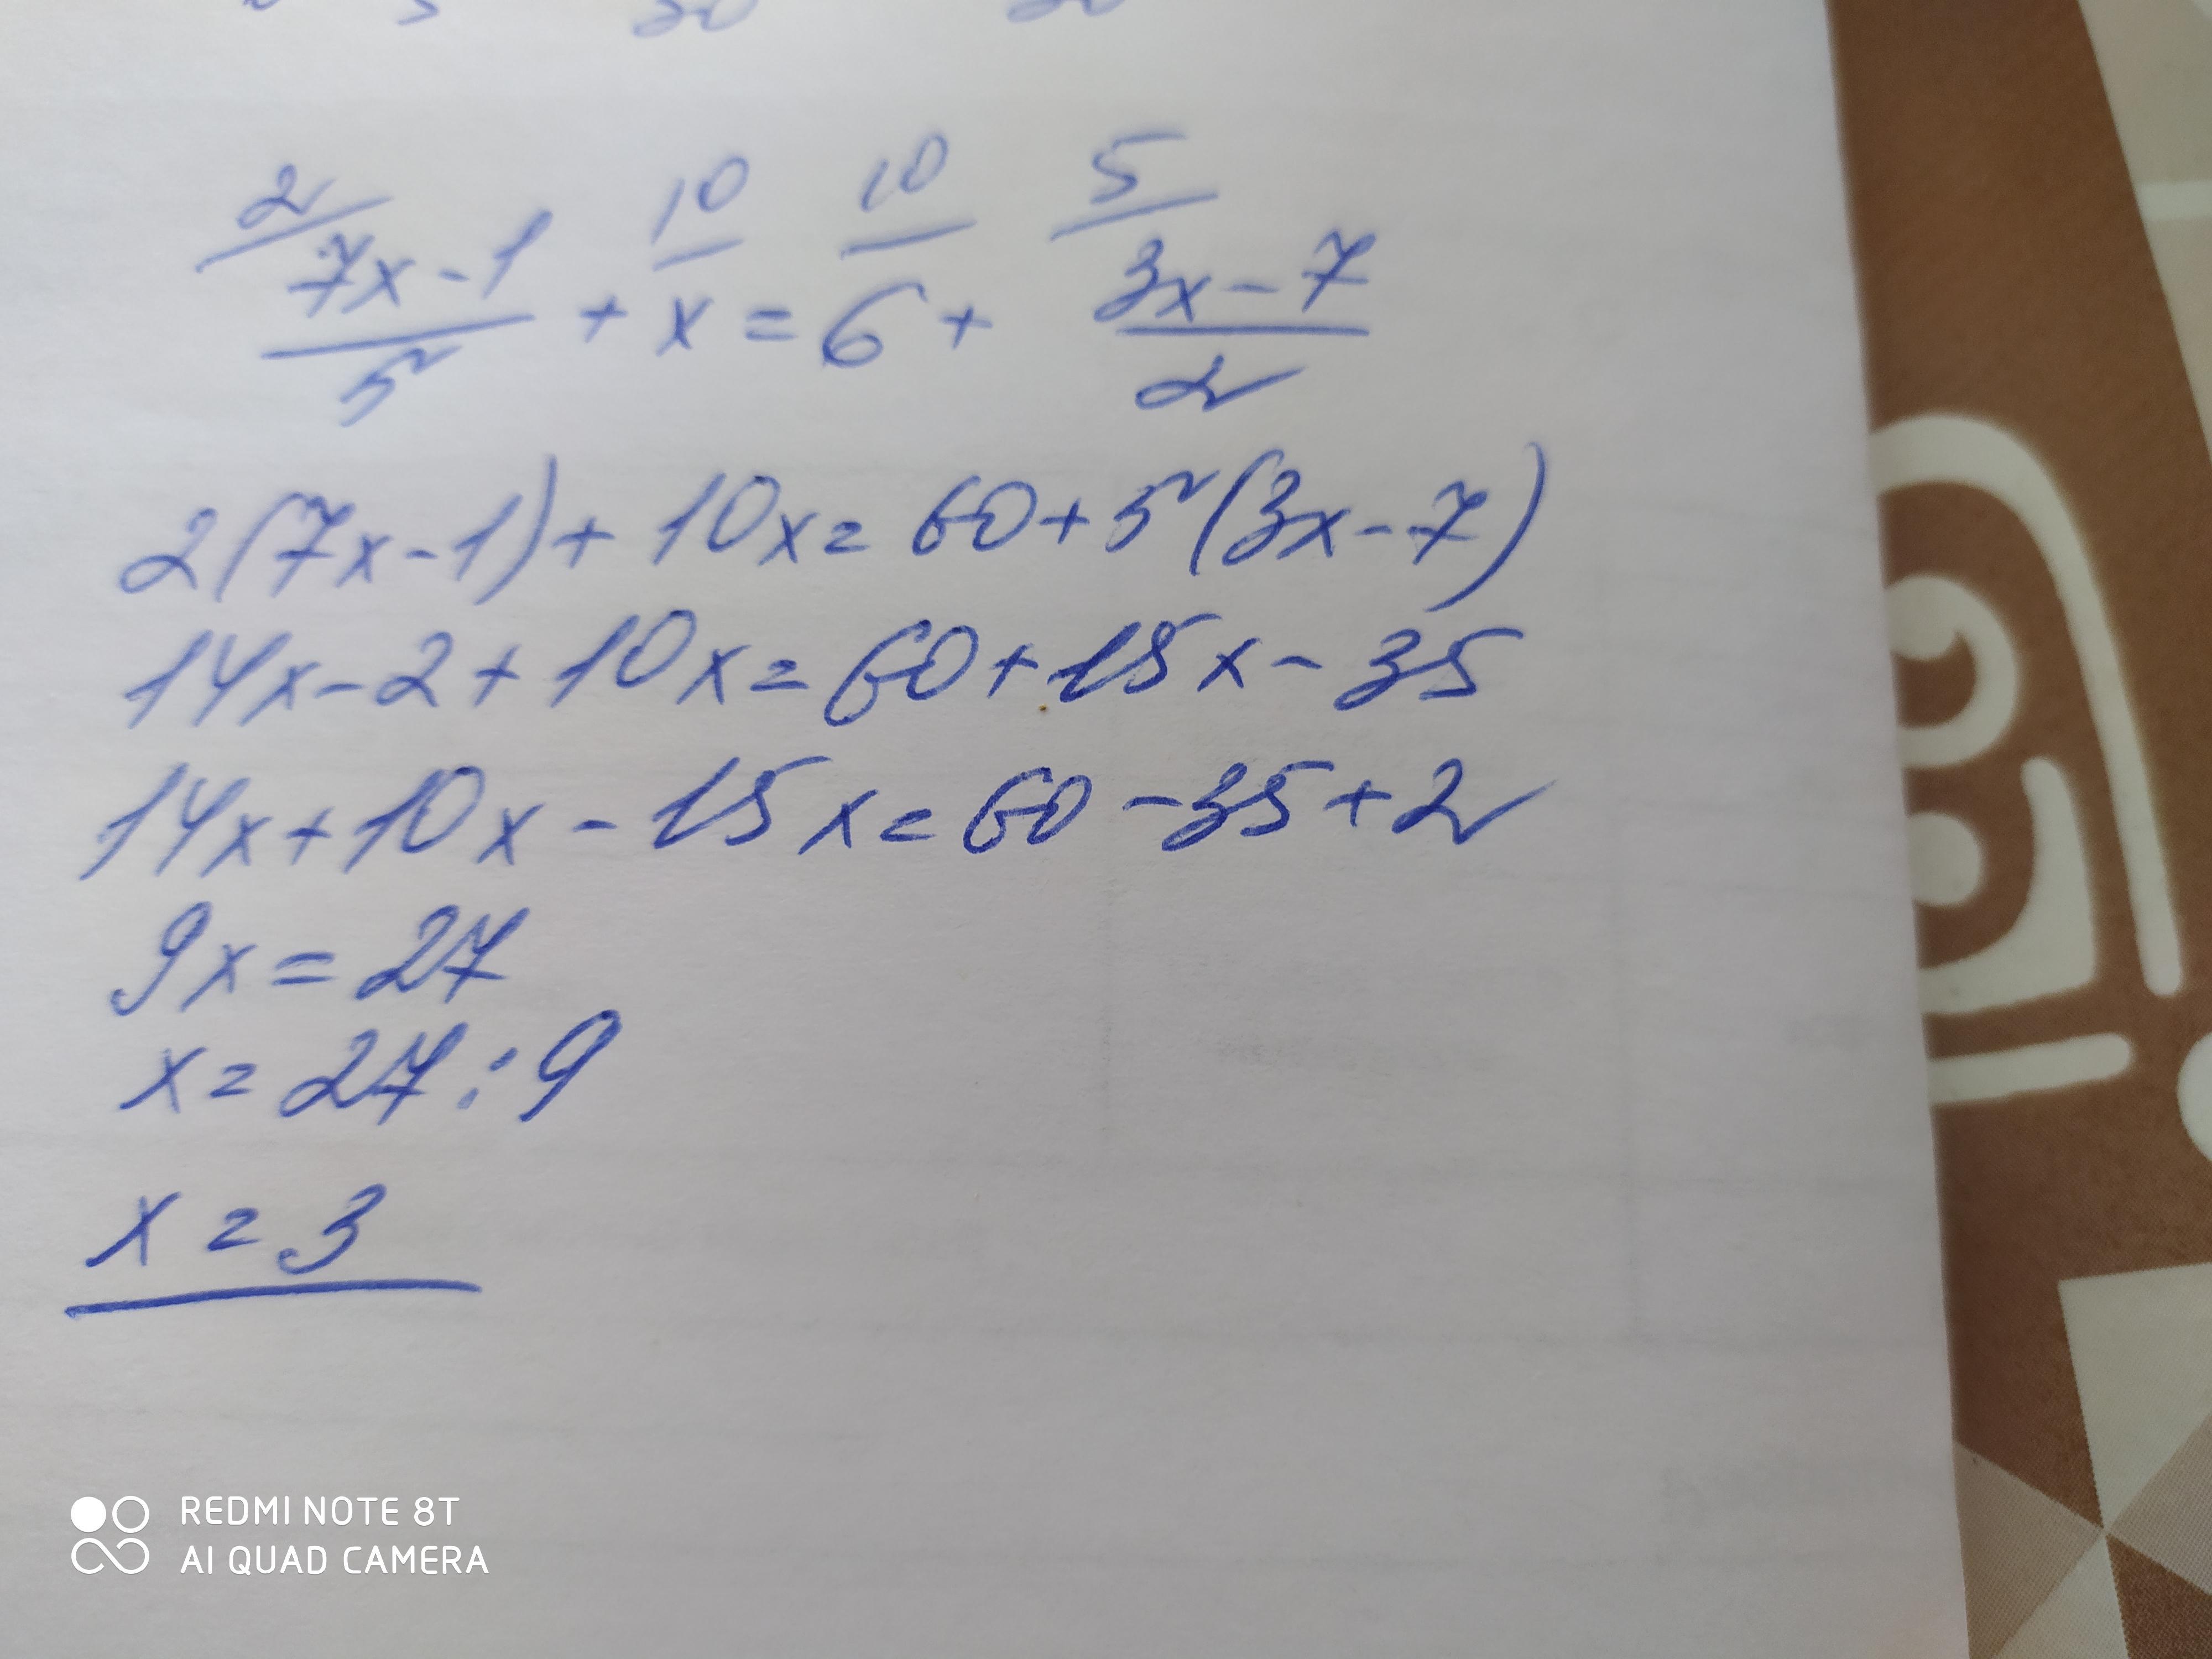 2 10 10 5
7x-1/5 + x = 6 + 3x-7/2
2(7x-1)+10x=60+5(3x-7)
14x-2+10x=60+15x-35
14x+10x-15x=60-35+2
9x=27
x=27:9
x=3
REDMI NOTE 8T
AI QUAD CAMERA